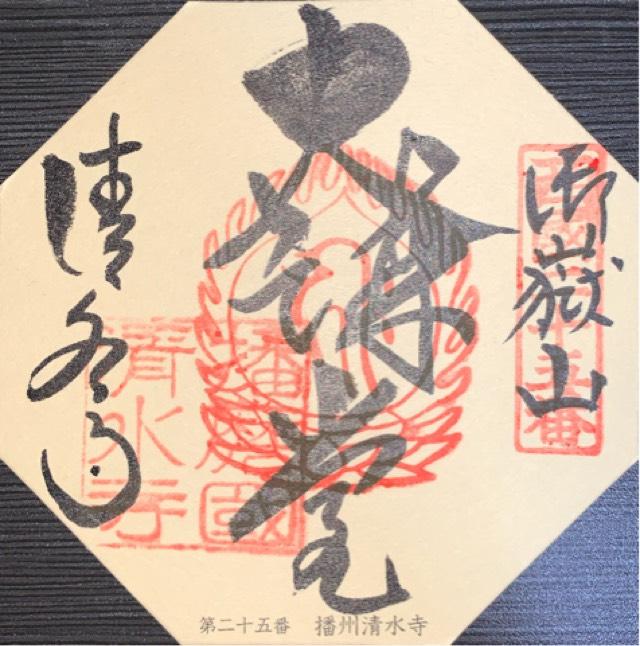 西國二十五番
御嶽山
大講堂
清水寺
播磨國
清水寺
第二十五番　播州清水寺